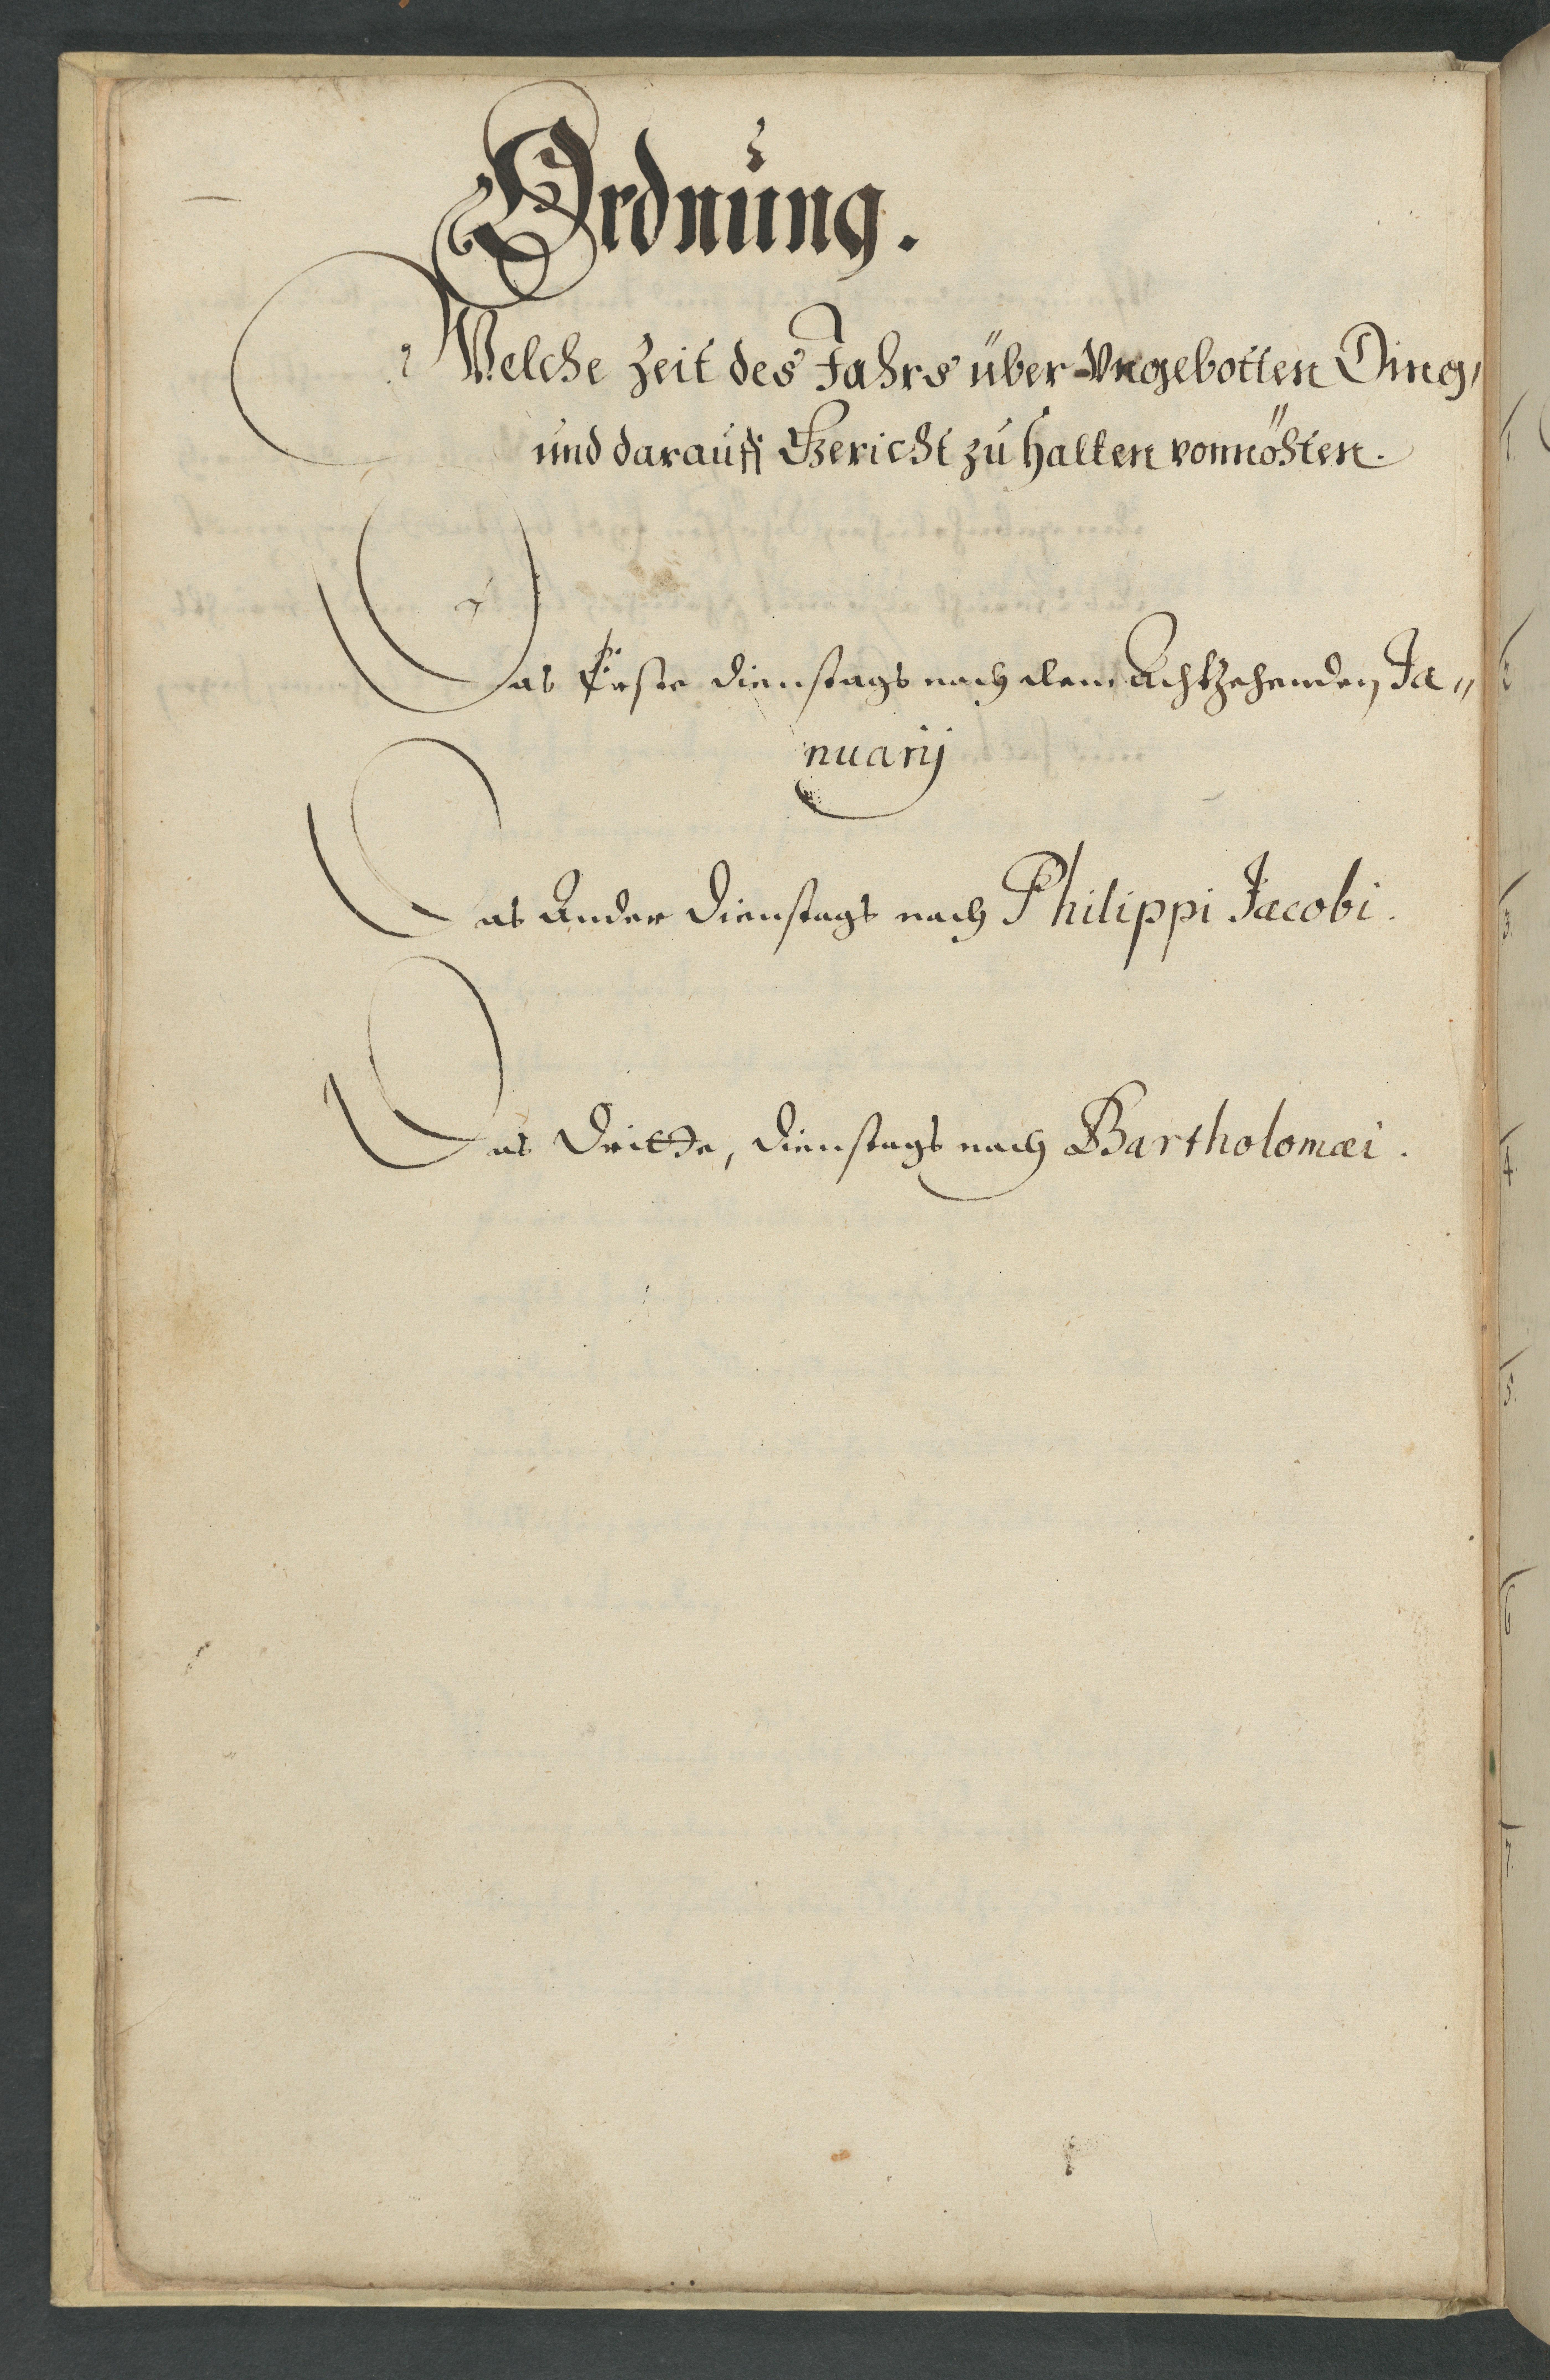 Ordnung.
Welche Zeit des Jahrs über Vngebotten Ding,
und darauff Gericht zu halten vonnöhten.
Das Erste dienstags nach dem Achtzehenden Ja„
nuarij
Das Ander dienstags nach Philippi Jacobi.
Das Dritte, dienstags nach Bartholomæi.
1.
2
3.
4.
5.
6
7.